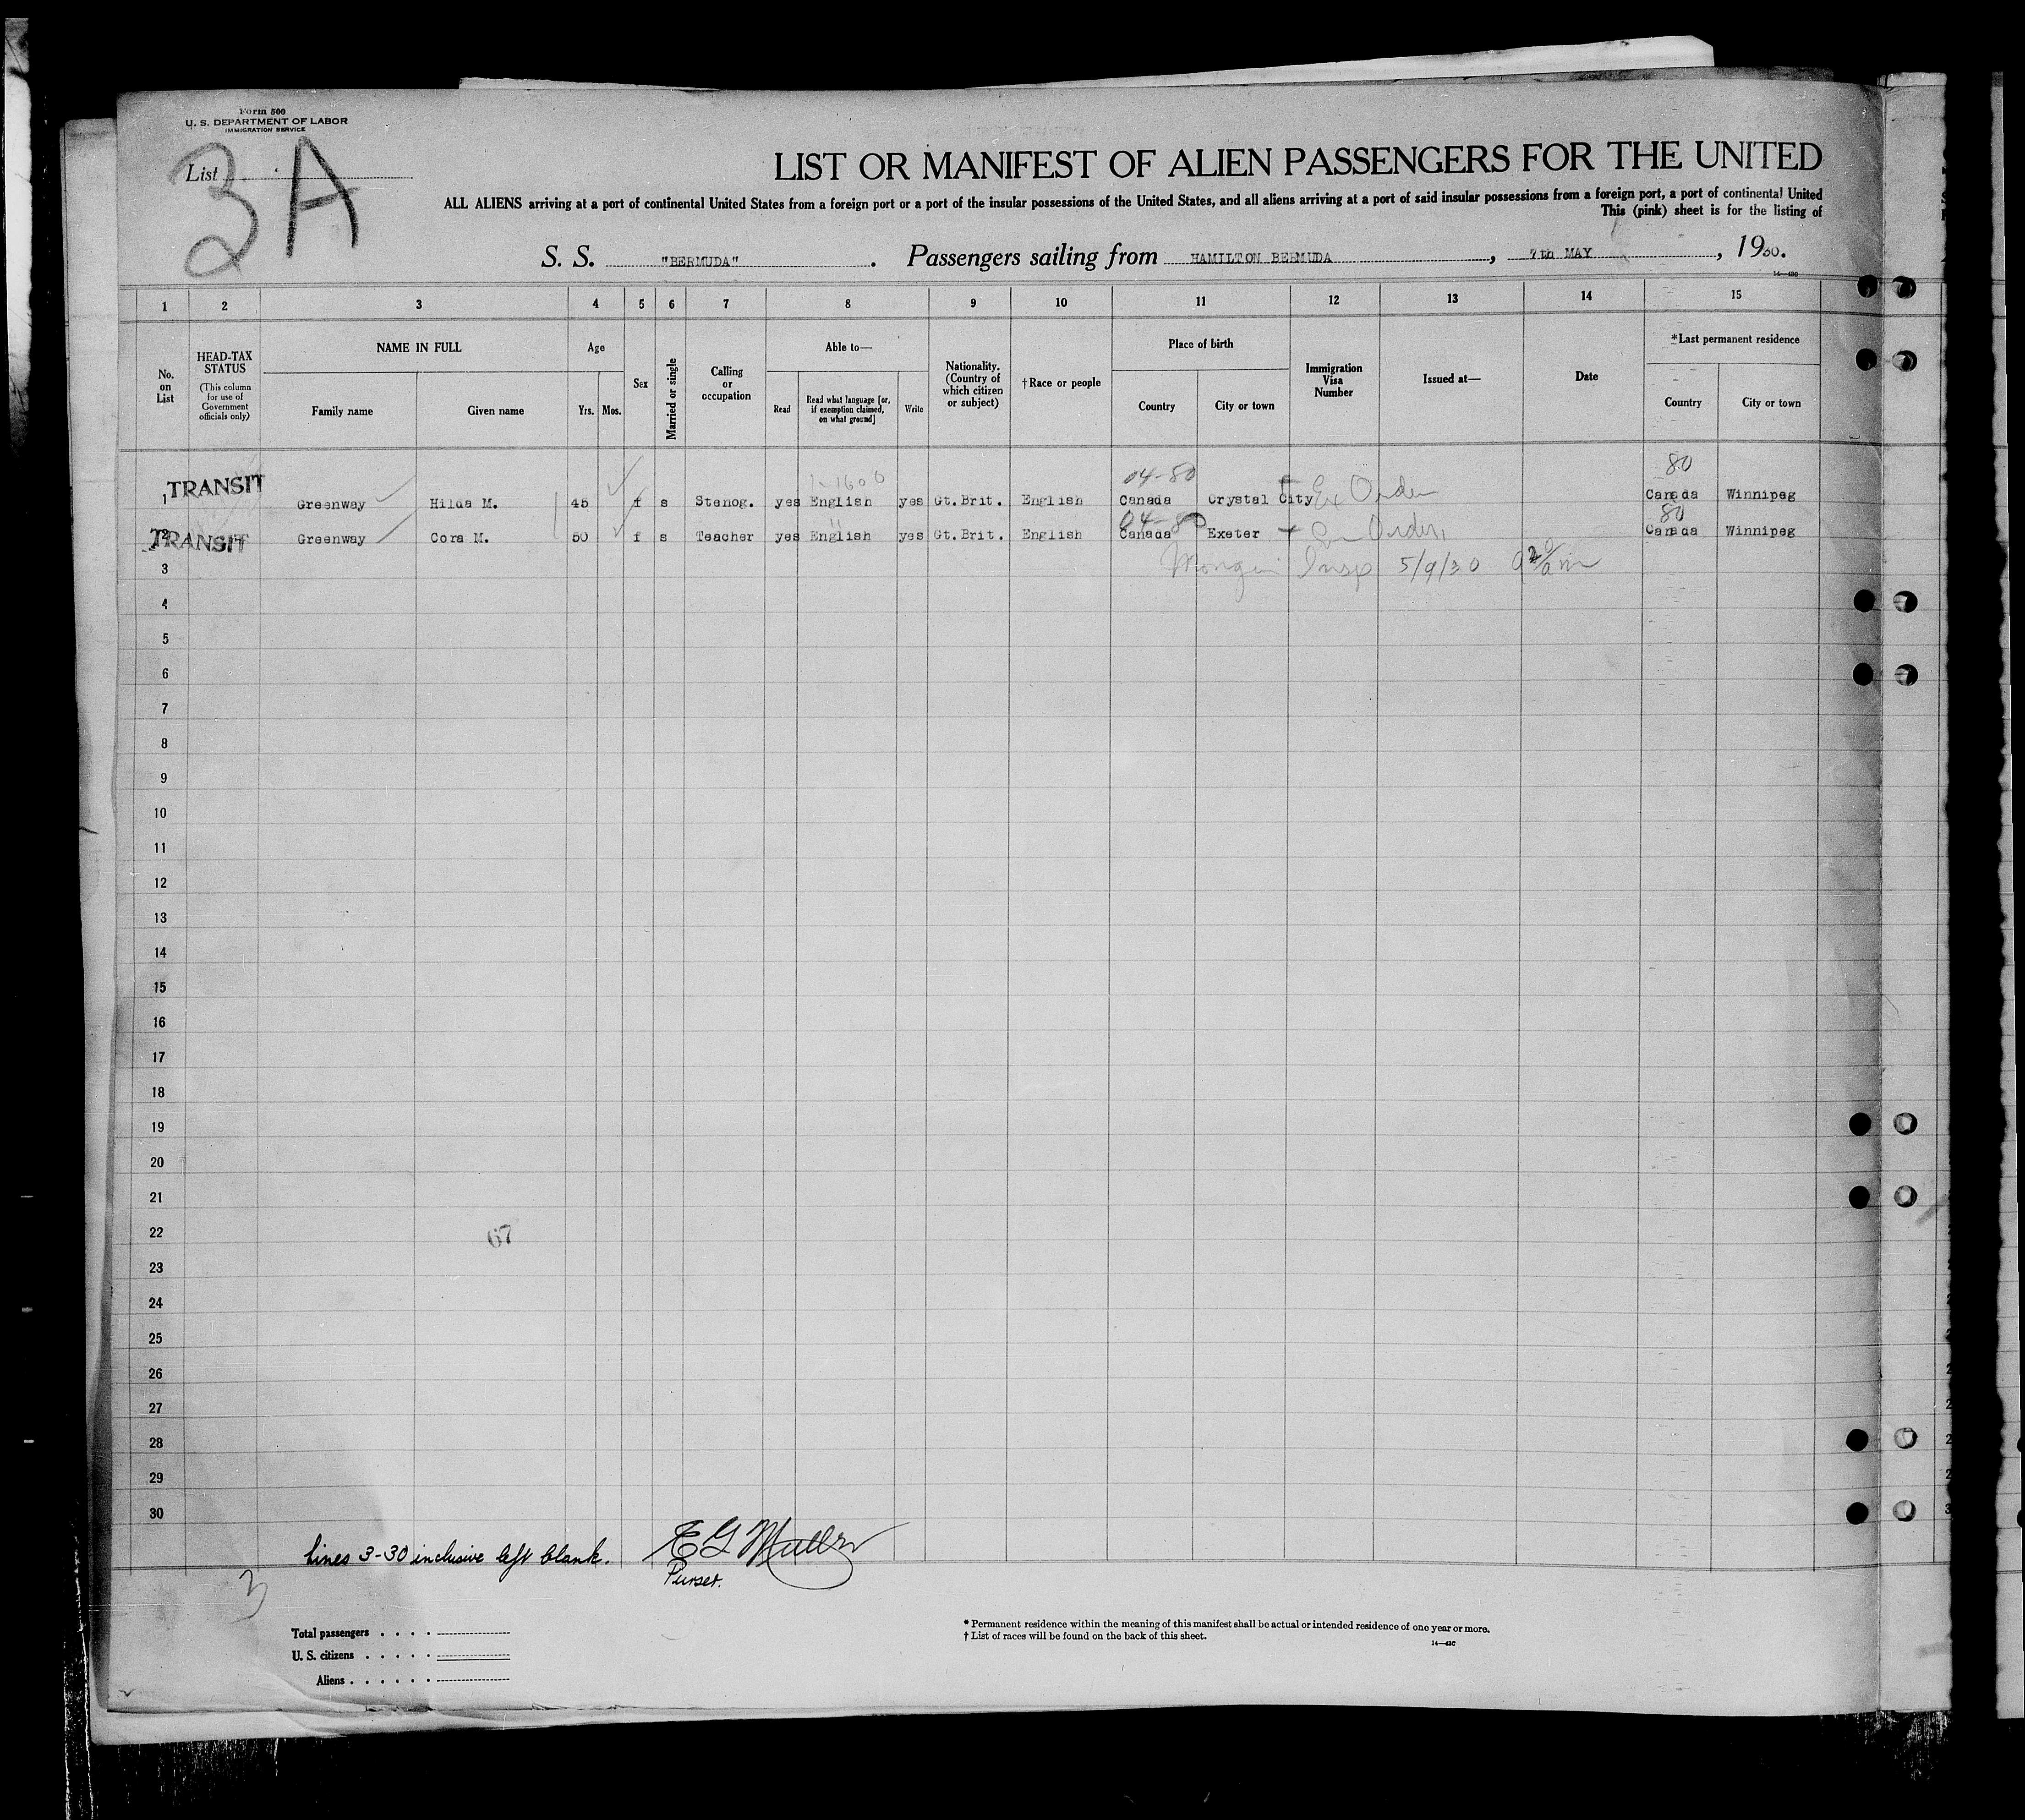 Form 500
U. S. DEPARTMENT OF LABOR
IMMIGRATION SERVICE
List 3 A
LIST OR MANIFEST OF ALIEN PASSENGERS FOR THE UNITED
ALL ALIENS arriving at a port of continental United States from a foreign port or a port of the insular possessions of the United States, and all aliens arriving at a port of said insular possessions from a foreign port, a port of continental United
This (pink) sheet is for the listing of
S. S. "BERMUDA". Passengers sailing from HAMILTON BERMUDA, 7th MAY, 1930.
1 2 3 4 5 6 7 8 9 10 11 12 13 14 15
No. on List
HEAD-TAX STATUS (This column for use of Government officials only)
NAME IN FULL
Family name Given name
Age
Yrs. Mos.
Sex
Married or single
Calling or occupation
Able to—
Read Read what language [or, if exemption claimed, on what ground] Write
Nationality. (Country of which citizen or subject)
†Race or people
Place of birth
Country City or town
Immigration Visa Number
Issued at—
Date
*Last permanent residence
Country City or town
04-80 80
1 TRANSIT Greenway Hilda M. 45 f s Stenog. yes English yes Gt.Brit. English Canada Crystal City Ex Order Canada Winnipeg
04-80 80
2 TRANSIT Greenway Cora M. 50 f s Teacher yes English yes Gt.Brit. English Canada Exeter Ex Order Canada Winnipeg
3 Insp 5/9/30
4
5
6
7
8
9
10
11
12
13
14
15
16
17
18
19
20
21
22
67
23
24
25
26
27
28
29
30
Lines 3-30 inclusive left blank. E G Muller
Purser.
3
Total passengers
U. S. citizens
Aliens
* Permanent residence within the meaning of this manifest shall be actual or intended residence of one year or more.
† List of races will be found on the back of this sheet.